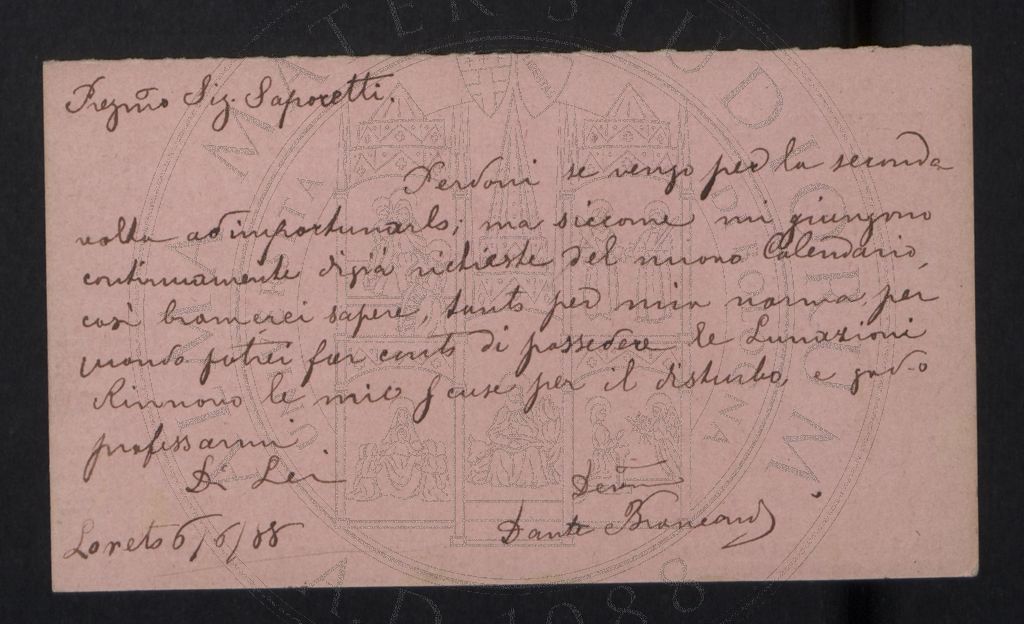 Pregmo Sig. Saporetti.
Perdoni se vengo per la seconda
volta ad importunarlo; ma siccome mi giungono
continuamente digià richieste del nuovo Calendario,
così bramerei sapere, tanto per mia norma, per
quando potrei far conto di possedere le Lunazioni
Rinnovo le mie scuse per il disturbo, e godo
professarmi
Di Lei
Devm
Dante Brancondi
Loreto 6/6/88
ALMA MATER STUDIORUM
A.D. 1088